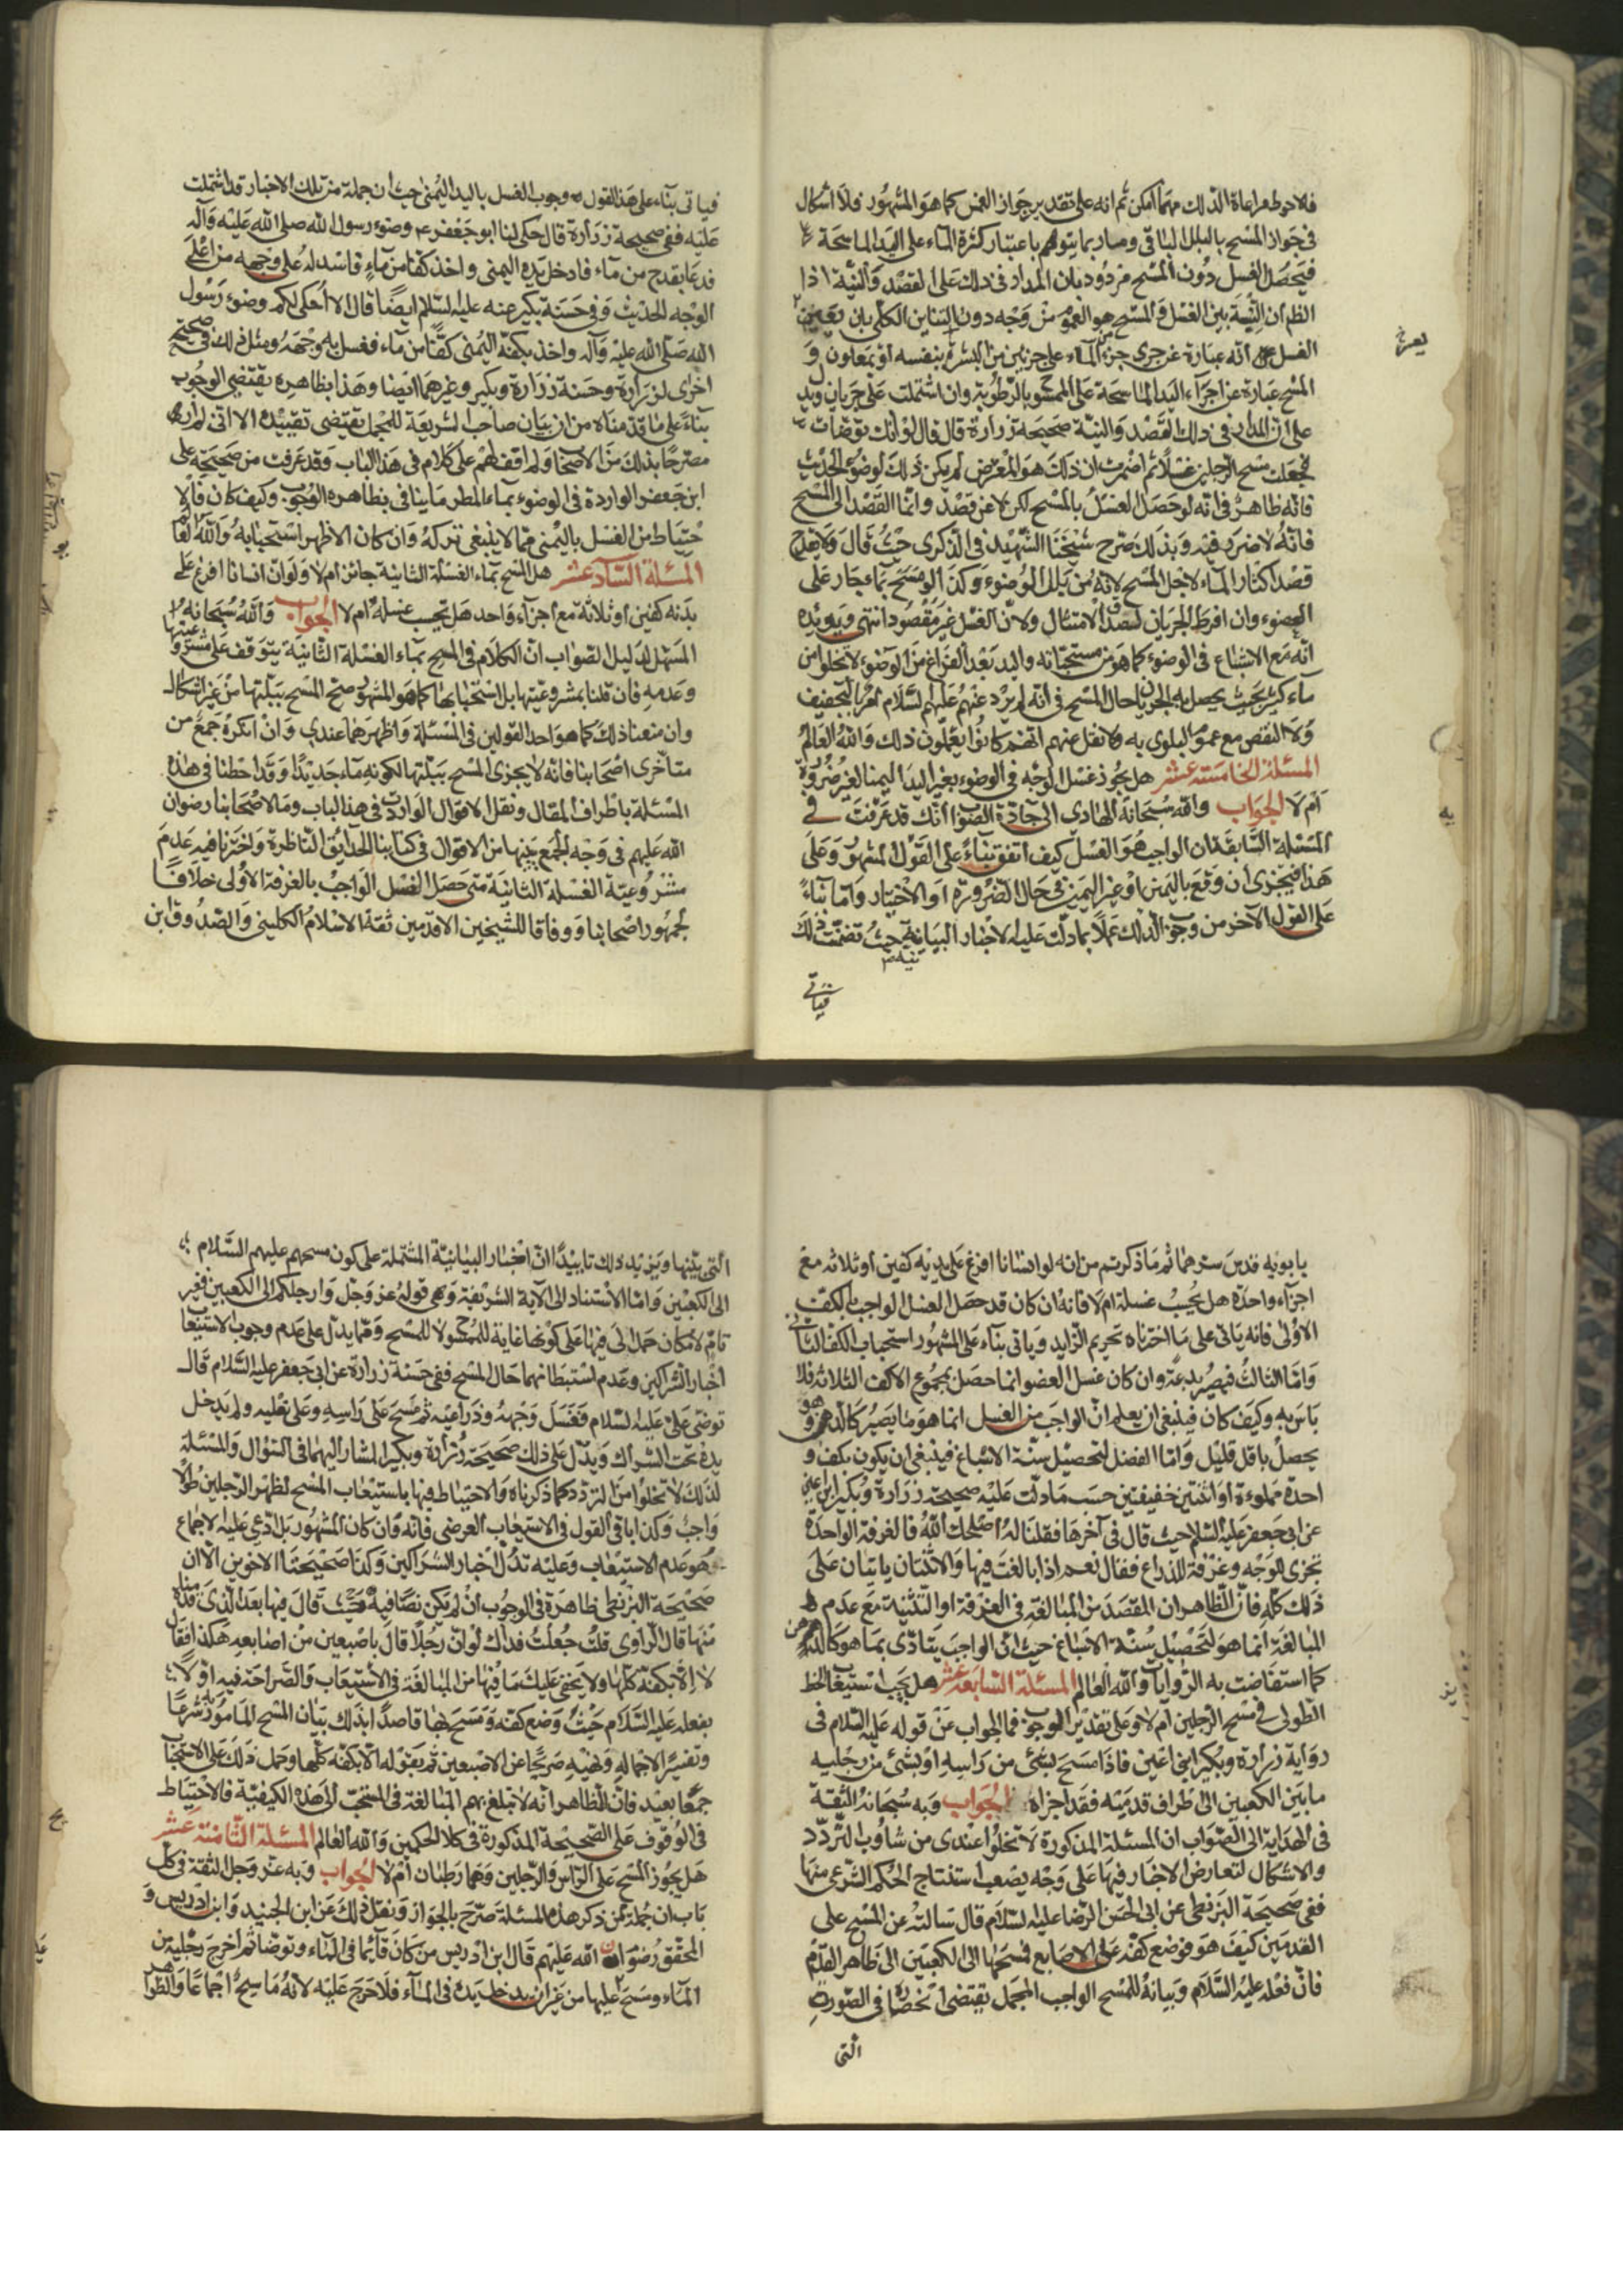 فالاحوط مراعاة الذلك مهما امكن ثم انه على تقدير جواز الغمس كما هو المشهور فلا اشكال
في جواز المسح بالبلل الباقي وما ربما يتوهم باعتبار كثرة الماء على اليد الماسحة
فيحصل الغسل دون المسح مردود بان المدار في ذلك على القصد والنية اذا
الظ ان النسبة بين الغسل والمسح هو العموم من وجه دون التباين الكلي بان
الغسل انه عبارة عن جرى جزء الماء على جزئين من البشرة بنفسه او بمعاون و
المسح عبارة عن اجراء اليد الماسحة على الممسوح بالرطوبة وان اشتملت على جريان ويدل
على ان المدار في ذلك القصد والنية صحيحة زرارة قال قال لو انك توضات
فجعلت مسح الرجلين غسلا ثم اضمرت ان ذلك هو المفترض لم يكن ذلك لوضوء الحديث
فانه ظاهر في انه لو حصل الغسل بالمسح لكن لا عن قصد وانما القصد الى المسح
فانه لا ضرر فيه وبذلك صرح شيخنا الشهيد في الذكرى حيث قال ولا يقدح
قصد اكثار الماء لاجل المسح لانه من بلل الوضوء وكذا لو مسح بماء جار على
العضو وان افرط الجريان لصدق الامتثال ولان الغسل غير مقصود انتهى ويويده
انه مع الاسباغ في الوضوء كما هو من مستحباته واليد بعد الفراغ من الوضوء لا تخلو من
ماء كثير بحيث يحصل به الجريان حال المسح في انه لم يرد عنهم عليهم السلام امر بالتجفيف
ولا النفض مع عموم البلوى به ولا نقل عنهم انهم كانوا يفعلون ذلك والله العالم
المسئلة الخامسة عشر هل يجوز غسل الوجه في الوضوء بغير اليد اليمنا لغير ضرورة
ام لا الجواب والله سبحانه الهادي الى جادة الصواب انك قد عرفت في
المسئلة السابقة ان الواجب هو الغسل كيف اتفق بناء على القول المشهور وعلى
هذا فيجزى ان وقع باليمين او غير اليمين في حال الضرورة او الاختيار واما بناء
على القول الآخر من وجوب الذلك عملا بما دلت عليه الاخبار البيانية حيث تضمنت ذلك
فياتي
فياتى بناء على هذا القول وجوب الغسل باليد اليمنى حيث ان جملة من تلك الاخبار قد اشتملت
عليه ففي صحيحة زرارة قال حكى لنا ابو جعفر ع وضوء رسول الله صلى الله عليه وآله
فدعا بقدح من ماء فادخل يده اليمنى واخذ كفا من ماء فاسدله على وجهه من اعلى
الوجه الحديث وفي حسنة بكير عنه عليه السلام ايضا قال الا احكى لكم وضوء رسول
الله صلى الله عليه وآله واخذ بكفه اليمنى كفا من ماء فغسل به وجهه ومثل ذلك في صحيحة
اخرى لزرارة وحسنة زرارة وبكير وغيرهما ايضا وهذا بظاهره يقتضي الوجوب
بناء على ما قدمناه من ان بيان صاحب الشريعة للمجمل يقتضي تقييده الا انى لم ار
مصرحا بذلك من الاصحاب ولم اقف لهم على كلام في هذا الباب وقد عرفت من صحيحة على
ابن جعفر الواردة في الوضوء بماء المطر ما ينافي بظاهره الوجوب وكيف كان فالا
حتياط من الغسل باليمنى مما لا ينبغي تركه وان كان الاظهر استحبابه والله العا
المسئلة السادسة عشر هل المسح بماء الغسلة الثانية جائز ام لا ولو ان انسانا افرغ على
بدنه كفين او ثلاثة مع اجزاء واحد هل تحسب غسلة ام لا الجواب والله سبحانه
المسهل لدليل الصواب ان الكلام في المسح بماء الغسلة الثانية يتوقف على مشروعيتها
وعدمه فان قلنا بمشروعيتها بل استحبابها كما هو المشهور صح المسح ببلتها من غير اشكال
وان منعنا ذلك كما هو احد القولين في المسئلة واظهرهما عندي وان انكره جمع من
متأخري اصحابنا فانه لا يجزى المسح ببلتها لكونه ماء جديدا وقد احطنا في هذه
المسئلة باطراف المقال ونقل الاقوال الواردة في هذا الباب وما لاصحابنا رضوان
الله عليهم في وجه الجمع بينها من الاقوال في كتابنا الحدائق الناظرة واخترنا فيه عدم
مشروعية الغسلة الثانية متى حصل الغسل الواجب بالغرفة الاولى خلافا
لجمهور اصحابنا ووفاقا للشيخين الاقدمين ثقة الاسلام الكليني والصدوق ابن
بابويه قدس سرهما ثم ما ذكرتم من انه لو انسانا افرغ على يديه كفين او ثلاثه مع
اجزاء واحدة هل يحسب غسلة ام لا فانه ان كان قد حصل الغسل الواجب بالكف
الاولى فانه ياتى على ما اخترناه تحريم الزايد وياتى بناء على المشهور استحباب الكف الثانى
واما الثالث فيصير بدعة وان كان غسل العضو انما حصل بمجموع الاكف الثلاثه فلا
باس به وكيف كان فينبغي ان يعلم ان الواجب من الغسل انما هو ما يصير كالدهن وهو
يحصل باقل قليل واما الفضل لتحصيل سنة الاسباغ فينبغي ان يكون بكف و
احدة مملوءة او اثنتين خفيفتين حسب ما دلت عليه صحيحة زرارة وبكير ابني اعين
عن ابي جعفر عليه السلام حيث قال في آخرها فقلنا له اصلحك الله فالغرفة الواحدة
تجزى للوجه وغرفة للذراع فقال نعم اذا بالغت فيها والاثنتان ياتيان على
ذلك كله فان الظاهر ان المقصد من المبالغة في الغرفة او التثنية مع عدم
المبالغة انما هو لتحصيل سنة الاسباغ حيث ان الواجب يتادى بما هو كالدهن
كما استفاضت به الروايات والله العالم المسئلة السابعة عشر هل يجب استيعاب الخط
الطولى في مسح الرجلين ام لا وعلى تقدير الوجوب فما الجواب عن قوله عليه السلام فى
رواية زرارة وبكير ابني اعين فاذا مسح بشئ من راسه او بشئ من رجليه
ما بين الكعبين الى طراف قدميه فقد اجزاه الجواب وبه سبحانه الثقة
في الهداية الى الصواب ان المسئلة المذكورة لا تخلو عندى من شاؤب التردد
والاشكال لتعارض الاخبار فيها على وجه يصعب استنتاج الحكم الشرعى منها
ففي صحيحة البزنطي عن ابي الحسن الرضا عليه السلام قال سالته عن المسح على
القدمين كيف هو فوضع كفه على الاصابع فمسحها الى الكعبين الى ظاهر القدم
فان فعله عليه السلام وبيانه للمسح الواجب المجمل يقتضى انحصاره في الصورة
التى
التي بينها ويزيد ذلك تاييدا ان اخبار البيانية المشتملة على كون مسحهم عليهم السلام
الى الكعبين واما الاستناد الى الآية الشريفة وهي قوله عز وجل وارجلكم الى الكعبين فغير
تام لامكان حمل الى فيها على كونها غاية للممسوح لا للمسح ومما يدل على عدم وجوب الاستيعاب
اخبار الشراكين وعدم استبطانهما حال المسح ففي حسنة زرارة عن ابي جعفر عليه السلام قال
توضى علي عليه السلام فغسل وجهه وذراعيه ثم مسح على راسه وعلى نعليه ولم يدخل
يده تحت الشراك ويدل على ذلك صحيحة زرارة وبكير المشار اليهما في السؤال والمسئلة
لذلك لا تخلو من التردد كما ذكرناه والاحتياط فيها باستيعاب المسح لظهر الرجلين طولا
واجب وكذا باقي القول في الاستيعاب العرضى فانه وان كان المشهور بل ادعى عليه الاجماع
هو عدم الاستيعاب وعليه تدل اخبار الشراكين وكذا صحيحة الاخوين الا ان
صحيحة البزنطى ظاهرة في الوجوب ان لم يكن نصا فيه حيث قال فيها بعد الذى قدمناه
منها قال الراوى قلت جعلت فداك لو ان رجلا قال باصبعين من اصابعه هكذا فقال
لا الا بكفه كلها ولا يخفى عليك ما فيها من المبالغة في الاستيعاب والصراحة فيه اولا
بفعله عليه السلام حيث وضع كفه ومسح بها قاصدا بذلك بيان المسح المامور به شرعا
وتفسير الاجماله ونهيه صريحا عن الاصبعين ثم بقوله الا بكفه كلها وحمل ذلك على الاستحباب
جمعا بعيد فان الظاهر انه لا تبلغ بهم المبالغة في المستحب الى هذه الكيفية فالاحتياط
فى الوقوف على الصحيحة المذكورة في كلا الحكمين والله العالم المسئلة الثامنة عشر
هل يجوز المسح على الراس والرجلين وهما رطبان ام لا الجواب وبه عز وجل الثقة في كل
باب ان جملة ممن ذكر هذه المسئلة صرح بالجواز ونقل ذلك عن ابن الجنيد وابن ادريس و
المحقق رضوان الله عليهم قال ابن ادريس من كان قائما في الماء وتوضأ ثم اخرج رجليه من
الماء ومسح عليها من غير ان يدخل يده في الماء فلا حرج عليه لانه ماسح اجماعا والظواهر